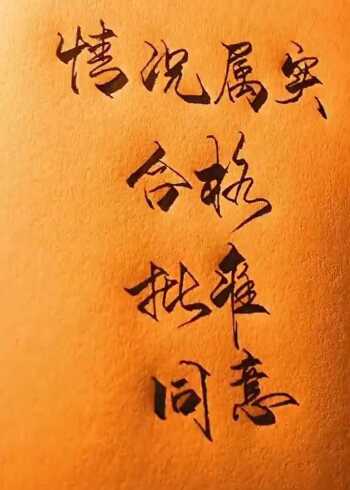 情况属实
合格
批准
同意